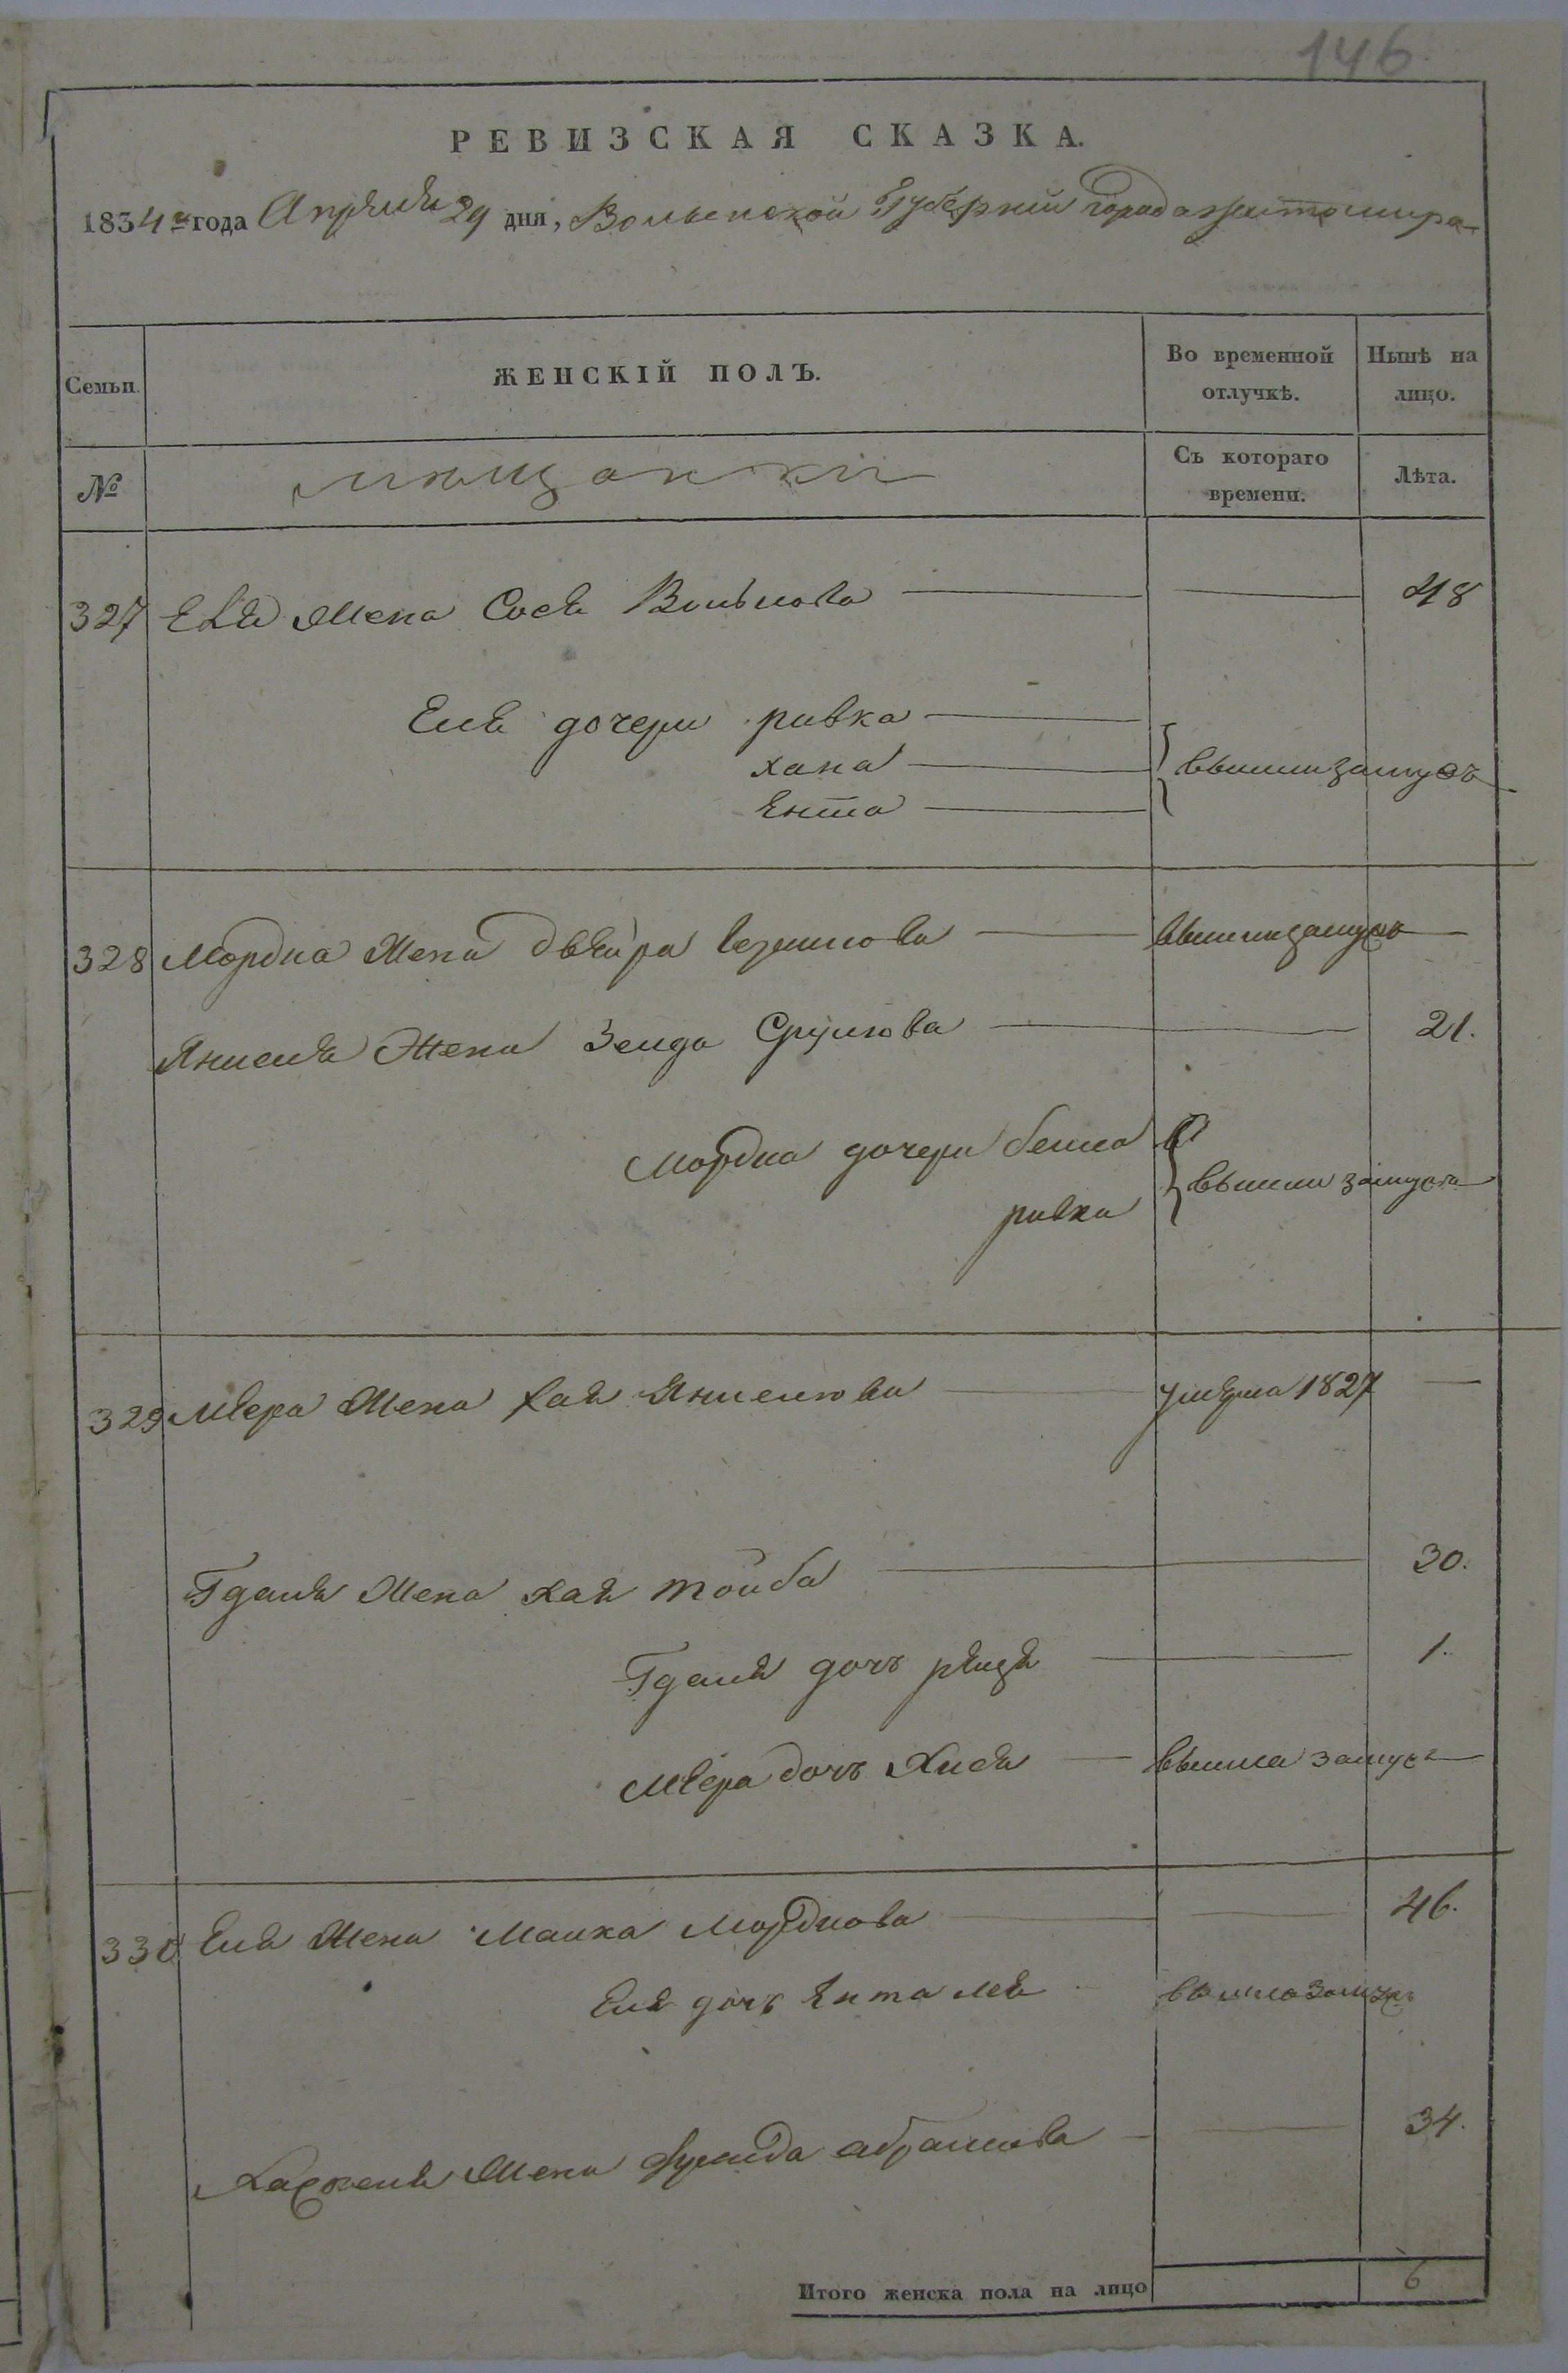 146
РЕВИЗСКАЯ СКАЗКА.
1834го года Апреля 29 дня, Волынской Губернии города житомира
Семьи. ЖЕНСКІЙ ПОЛЪ. Во временной отлучкѣ. Нынѣ на лицо.
№ мещанки Съ котораго времени. Лѣта.
327 Жена Сося Волькова — — 48
Еля дочери ривка —
хана — вышли замужъ
Ента —
328 Мордка Жена двейра — вышли замужъ
Янкеля Жена Зелда Срулова — — 21.
Мордка дочери бейла
ривка вышли замужъ
329 Меера Жена хая Янкелова — умерла 1827 —
Гдаля Жена хая тойба — — 30.
Гдаля дочь рейзя — — 1.
Меера дочь Хися — вышла замужъ
330 Еля Жена Малка Мордкова — — 46.
Еля дочь Ента лея вышла замужъ
Жена фрейда абрамова — — 34.
Итого женска пола на лицо 6